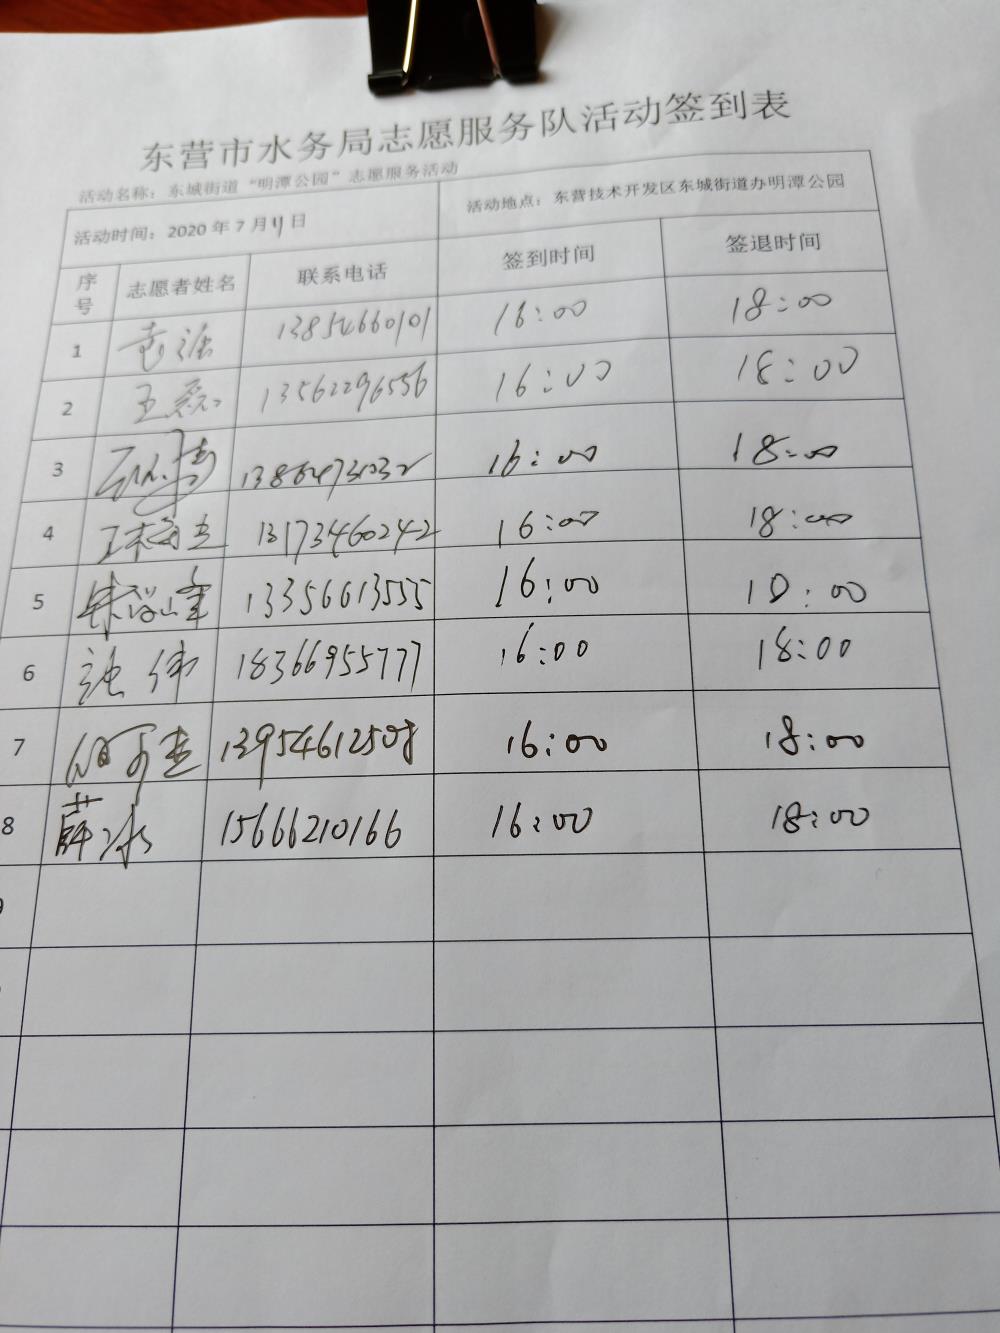 东营市水务局志愿服务队活动签到表
活动名称：东城街道“明潭公园”志愿服务活动
活动时间：2020年7月11日 活动地点：东营技术开发区东城街道办明潭公园
序号 志愿者姓名 联系电话 签到时间 签退时间
1 13854660101 16:00 18:00
2 王磊 13562296556 16:00 18:00
3 16:00 18:00
4 13173460242 16:00 18:00
5 13356613555 16:00 18:00
6 张伟 18366955777 16:00 18:00
7 16:00 18:00
8 薛冰 15666210166 16:00 18:00